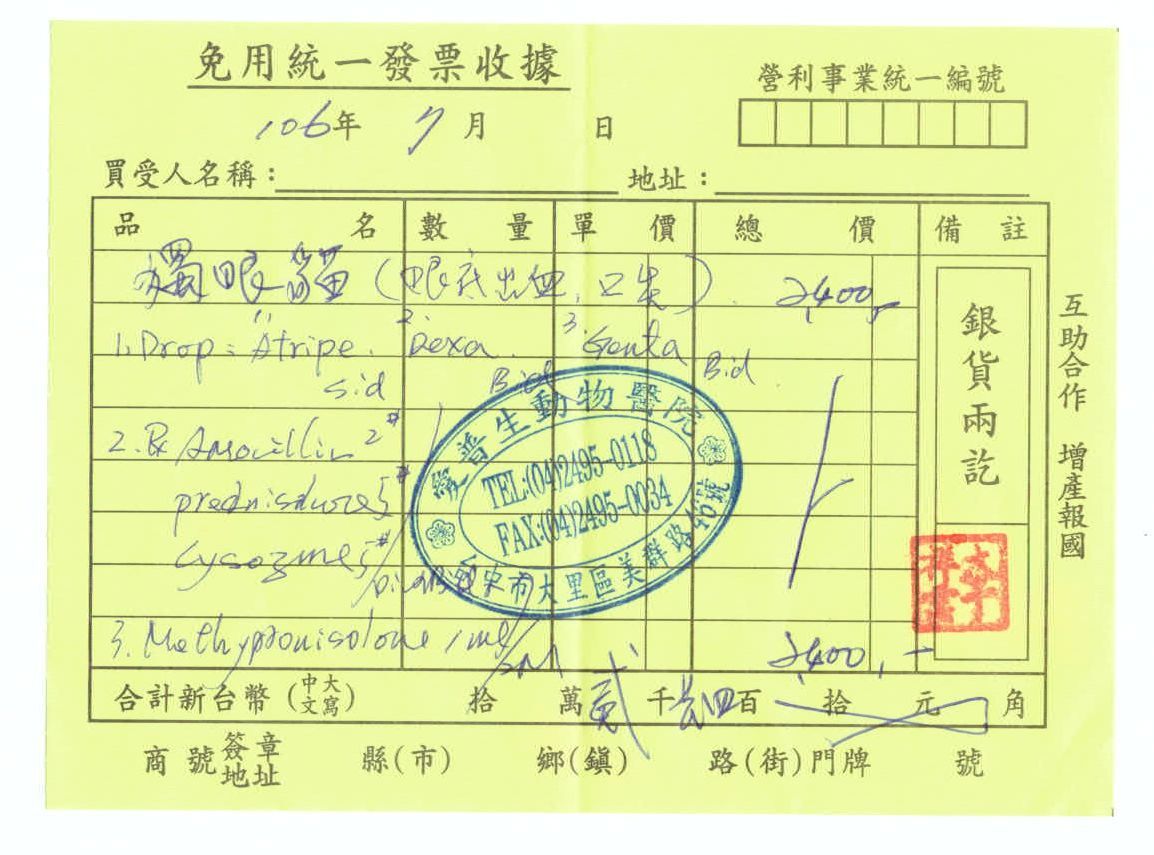 免用統一發票收據
營利事業統一編號
106年 7月 日
買受人名稱： 地址：
品名 數量 單價 總價 備註
獨眼貓(眼底出血, 口炎). 2,400,-
1. Drop: 1. Atripe. 2. Dexa. 3. Genta
sid Bid Bid.
2. Rx Amoxillin 2#
prednisolone 5#
Lysozme 5#
3. Methypronisolone 1mg/
2,400,-
銀貨兩訖
互助合作 增產報國
愛普生動物醫院
TEL:(04)2495-0118
FAX:(04)2495-0034
台中市大里區美群路40號
合計新台幣(中文大寫) 拾 萬 貳 千 四 百 拾 元 角
商號簽章地址 縣(市) 鄉(鎮) 路(街)門牌 號